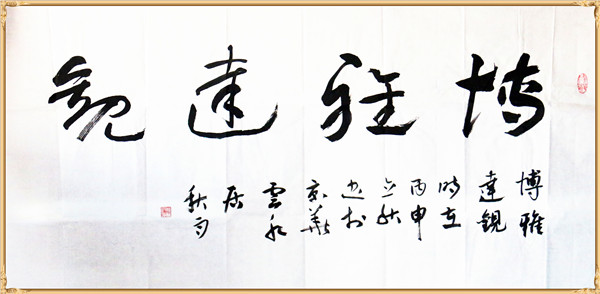 博雅達觀
博雅
達觀
時在
丙申
立秋
书於
京華
雲水
居
秋